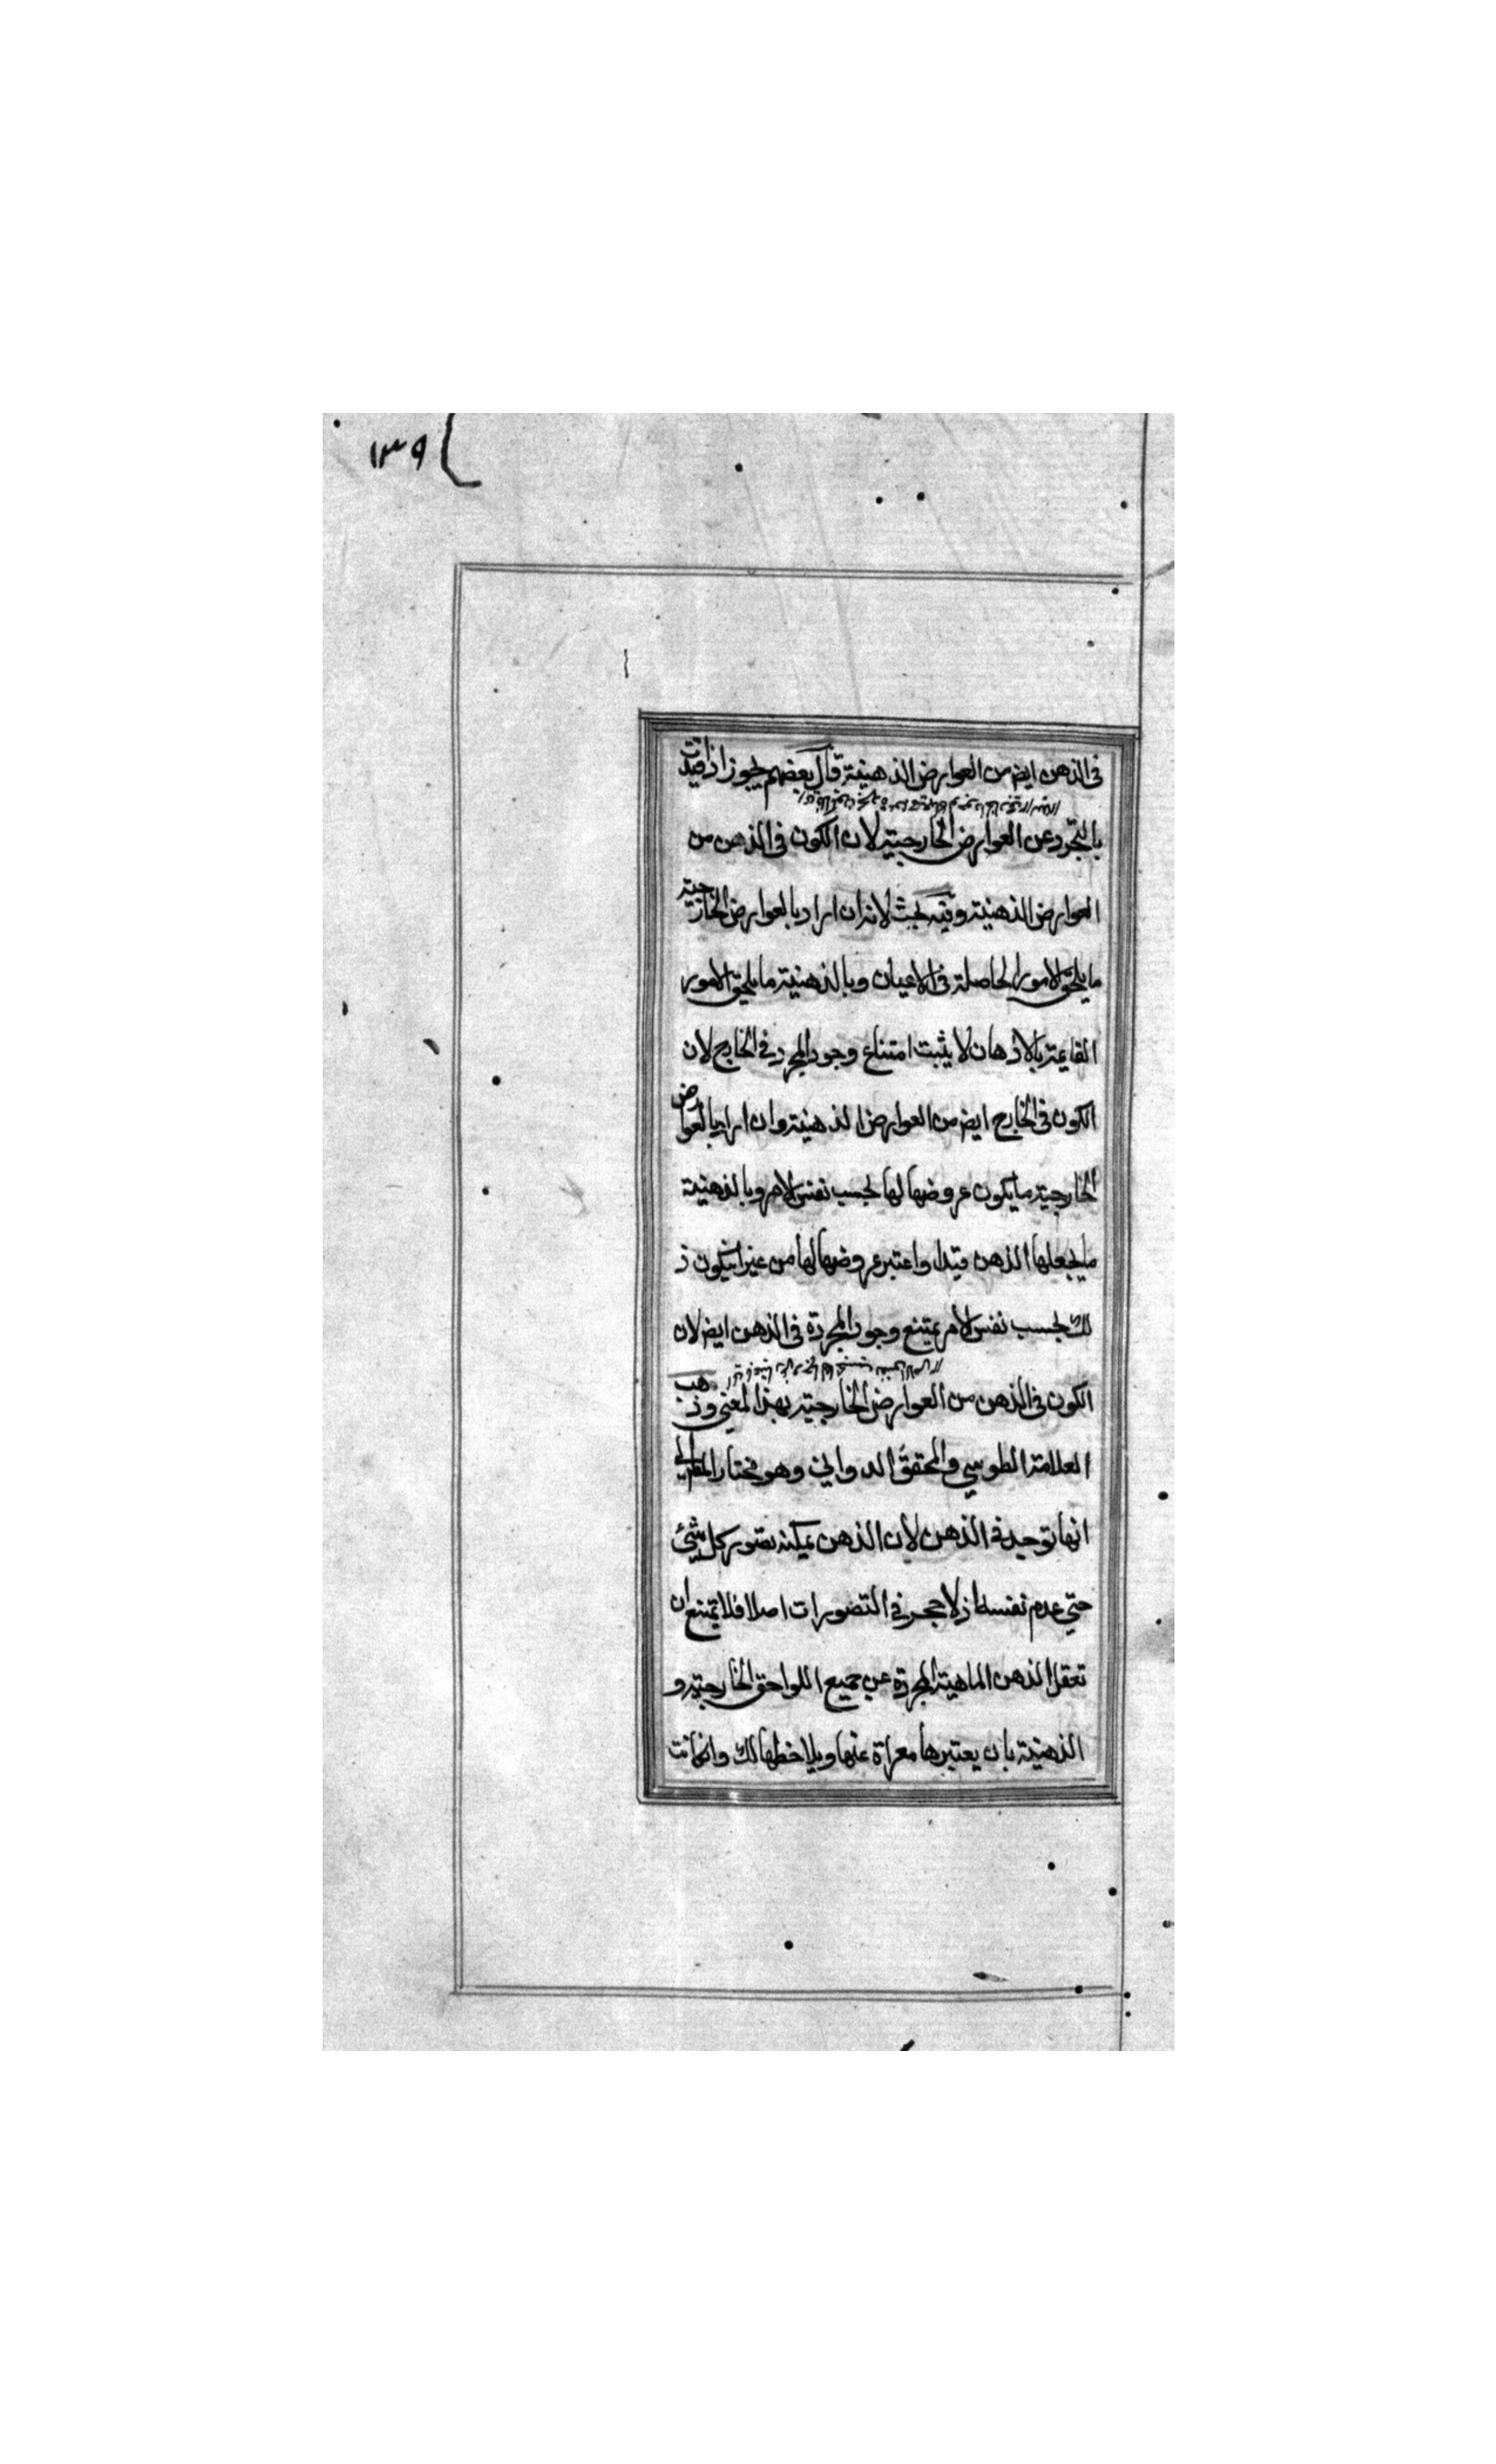 ١٣٩
فى الذهن ايض من العوارض الذهنية قال بعضهم يجوز اذا قيدت
بالتجرد عن العوارض الخارجية لان الكون فى الذهن من
العوارض الذهنية وفيه بحث لانه ان اراد بالعوارض الخارجية
ما يلحق الامور الحاصلة فى الاعيان وبالذهنية ما يلحق الامور
القايمة بالاذهان لا يثبت امتناع وجود المجرد فى الخارج لان
الكون فى الخارج ايض من العوارض الذهنية وان اراد بالعوارض
الخارجية ما يكون عروضها لها بحسب نفس الامر وبالذهنية
ما يجعلها الذهن قيدا واعتبر عروضها لها من غير ان يكون ذ
لك بحسب نفس الامر يمتنع وجود المجردة فى الذهن ايض لان
الكون فى الذهن من العوارض الخارجية بهذا المعنى وذهب
العلامة الطوسي والمحقق الدوانى وهو مختار المقر الى
انها توجد فى الذهن لان الذهن يمكنه تصور كل شيئ
حتى عدم نفسه اذ لا حجر فى التصورات اصلا فلا يمتنع ان
تعقل الذهن الماهية المجردة عن جميع اللواحق الخارجية و
الذهنية بان يعتبرها معراة عنها ويلاحظها لك وان كانت